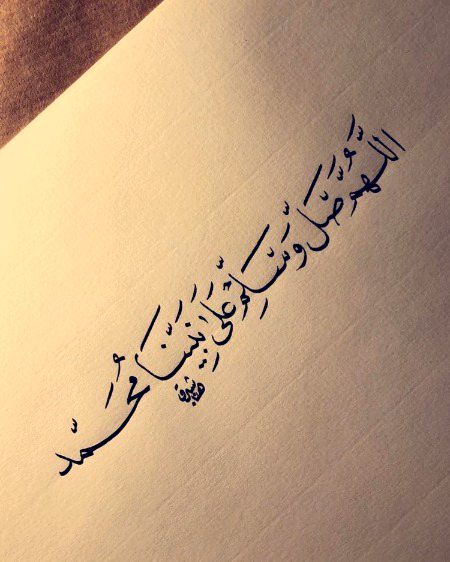 اللَّهُمَّ صَلِّ وَسَلِّمْ عَلَى نَبِيِّنَا مُحَمَّد